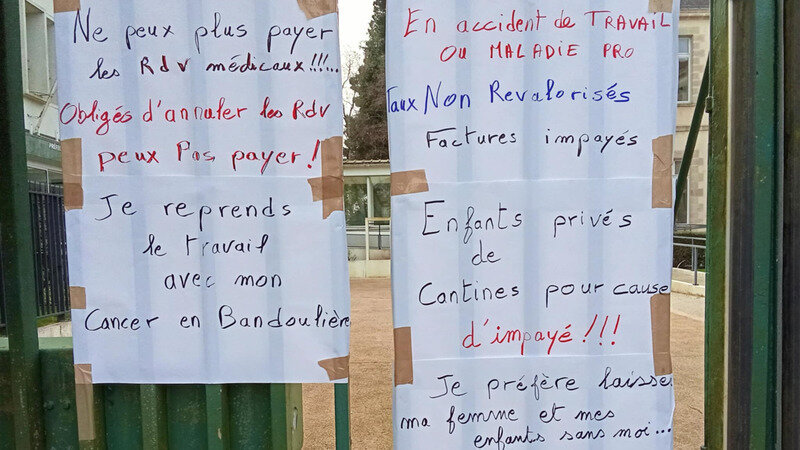 Ne peux plus payer
les Rdv médicaux!!!...
Obligés d'annuler les Rdv
peux Pas payer!
Je reprends
le travail
avec mon
Cancer en Bandoulière
En accident de TRAVAIL
OU MALADIE PRO
Taux Non Revalorisés
Factures impayés
Enfants privés
de
Cantines pour cause
d'impayé!!!
Je préfère laisse
ma femme et mes
enfants sans moi...